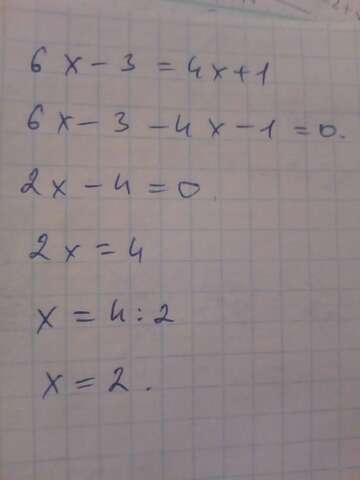 6x - 3 = 4x + 1
6x - 3 - 4x - 1 = 0.
2x - 4 = 0
2x = 4
x = 4 : 2
x = 2.